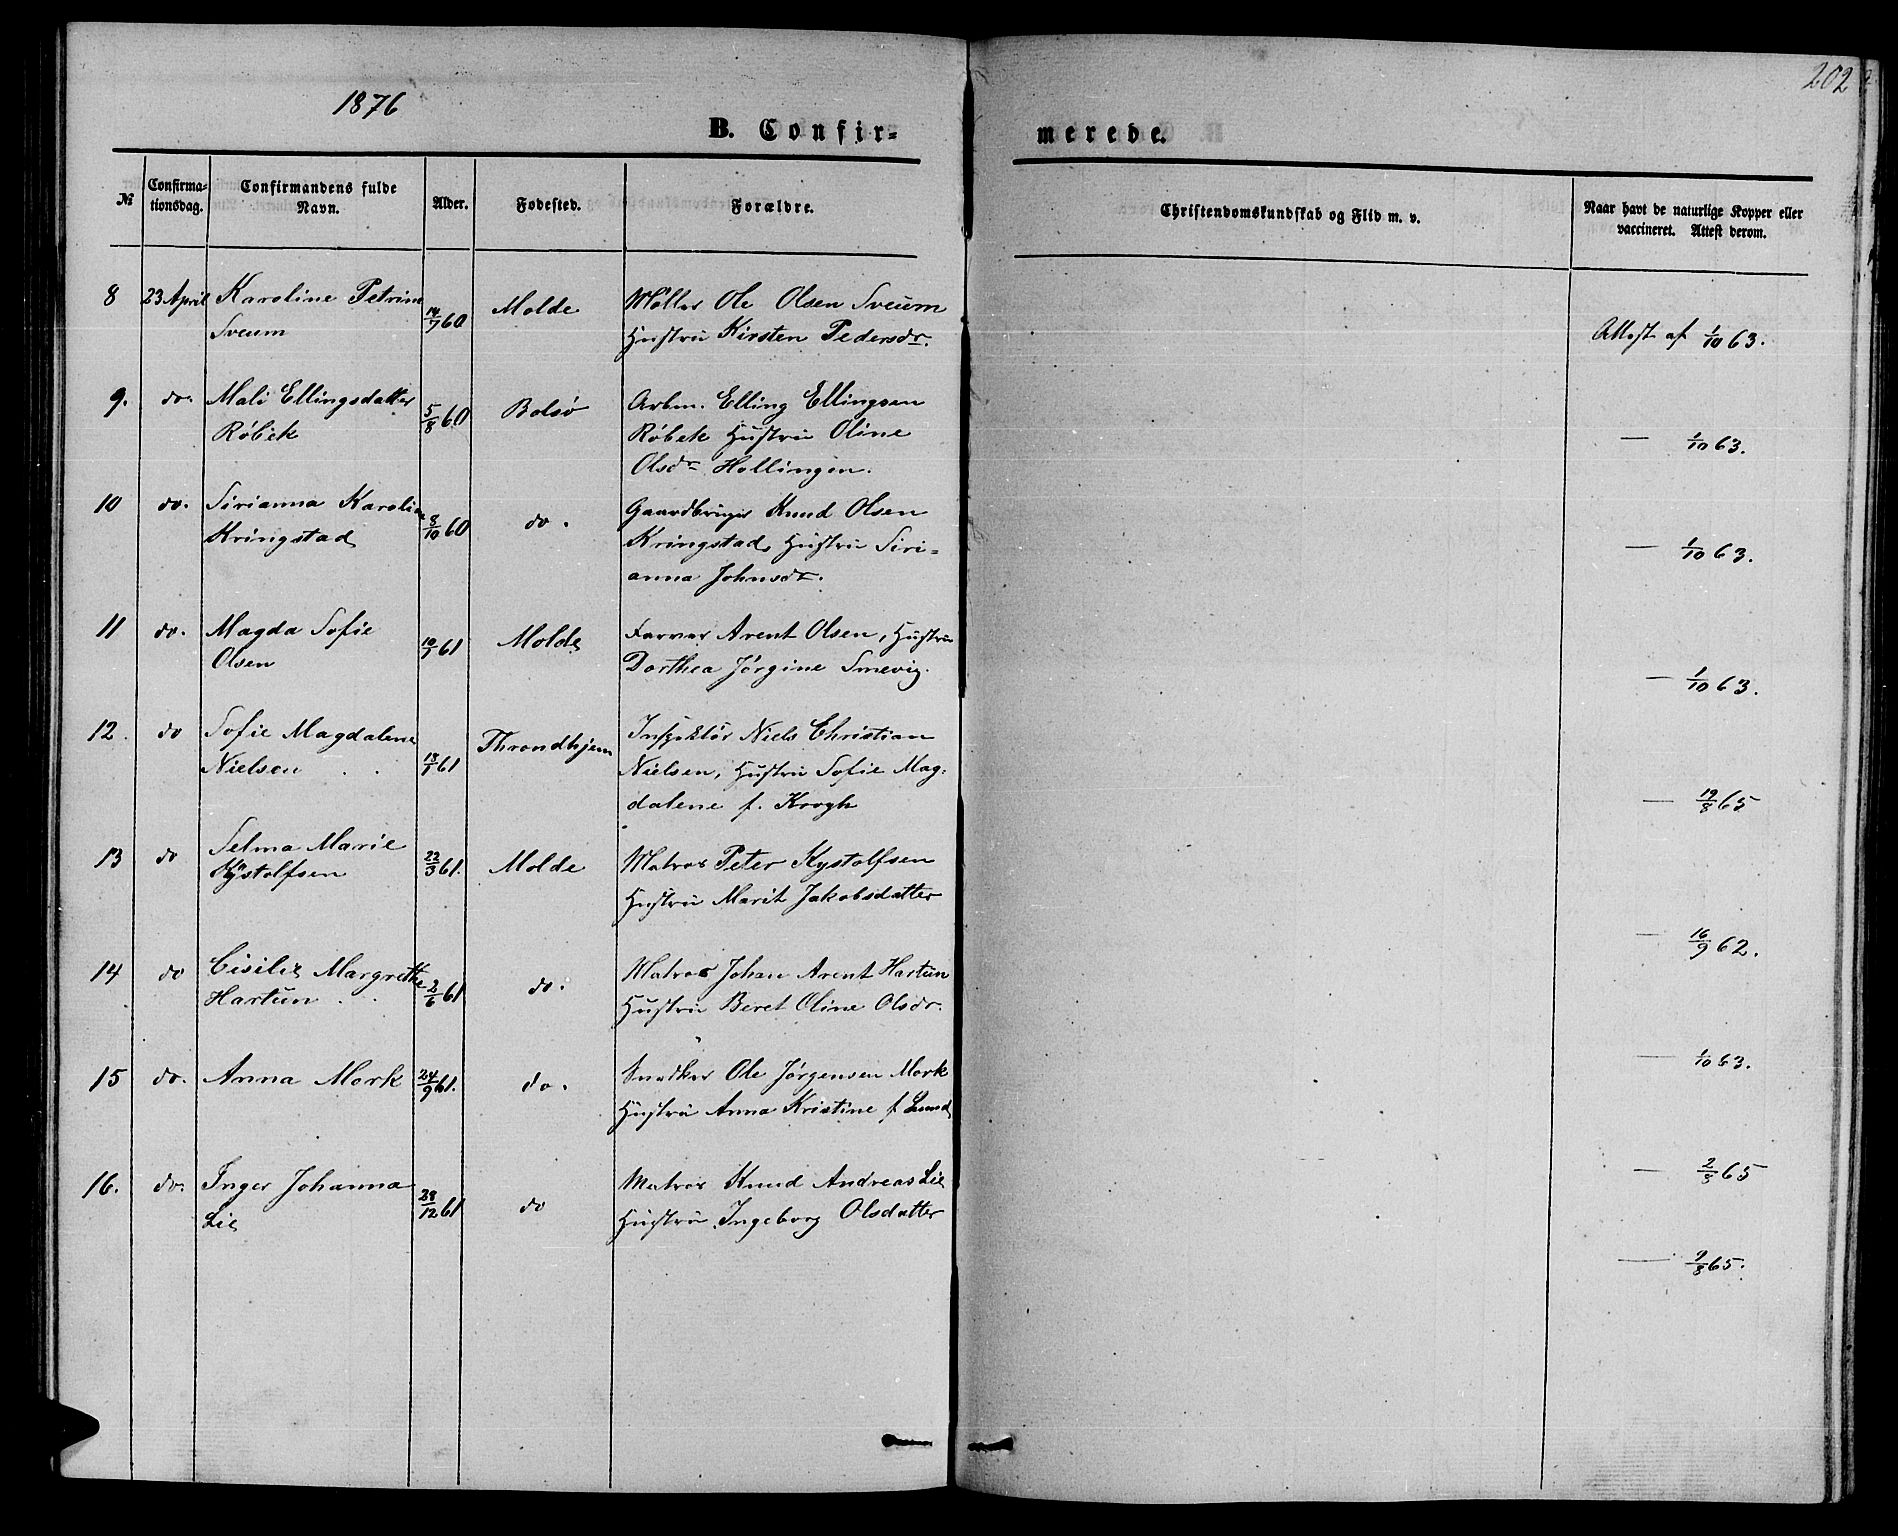 1876
202
B. Confir-
merede.
№
Confirma-
tionsdag.
Confirmandens fulde
Navn.
Alder.
Fødested.
Forældre.
Christendomskundskab og Flid m. v.
Naar havt de naturlige Kopper eller
vaccineret. Attest derom.
8 23 April Karoline Petrine 14/7 60 Molde Møller Ole Olsen Sveum Attest af 1/10 63.
Sveum Hustru Kirsten Pedersdr.
9. do. Mali Ellingsdatter 5/8 60 Bolsø Arbm. Elling Ellingsen — 1/10 63.
Røbek Røbek Hustru Oline
Olsdr Hollingen.
10 do. Sirianna Karoline 8/10 60 do. Gaardbruger Knud Olsen — 1/10 63.
Kringstad Kringstad, Hustru Siri=
anna Johnsdr.
11 do. Magda Sofie 10/1 61 Molde Farver Arent Olsen, Hustru — 1/10 63.
Olsen Dorthea Jørgine Smevig.
12. do Sofie Magdalene 18/1 61 Throndhjem Inspektør Niels Christian — 19/8 65
Nielsen Nielsen, Hustru Sofie Mag-
dalene f. Krogh
13 do Selma Marie 22/3 61. Molde Matros Peter Kystolfsen — 16/9 62.
Kystolfsen Hustru Marit Jakobsdatter
14 do Cisilie Margrethe 2/6 61 do. Matros Johan Arent Hartun — 1/10 63.
Hartun Hustru Beret Oline Olsdr.
15 do. Anna Mork 24/9 61. do. Snedker Ole Jørgensen Mork — 2/8 65
Hustru Anna Kristine f Lund
16. do. Inger Johanna 28/12 61 do Matros Knud Andreas Lie — 9/8 65.
Lie Hustru Ingeborg Olsdatter